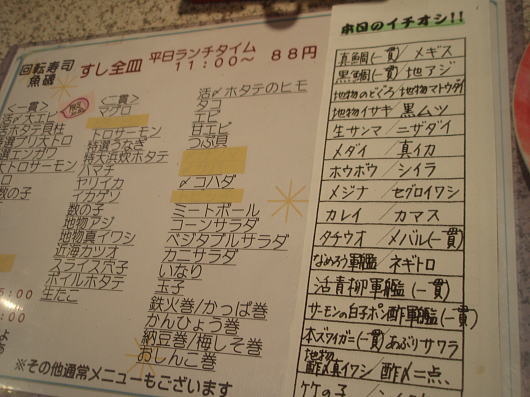 回転寿司
魚磯
すし全皿
平日ランチタイム
11:00〜 88円
<一貫>
活〆大エビ
活ホタテ貝柱
特選ブリ大トロ
特選エンガワ
大トロサーモン
数の子
<二貫>
マグロ
トロサーモン
特選うなぎ
特大浜炊ホタテ
ハマチ
ヤリイカ
イカゲソ
数の子
地物アジ
地物真イワシ
近海カツオ
スライス穴子
ボイルホタテ
生たこ
活〆ホタテのヒモ
タコ
エビ
甘エビ
つぶ貝
〆コハダ
ミートボール
コーンサラダ
ベジタブルサラダ
カニサラダ
いなり
玉子
鉄火巻/かっぱ巻
かんぴょう巻
納豆巻/梅しそ巻
おしんこ巻
※その他通常メニューもございます
本日のイチオシ!!
真鯛(一貫)/メギス
黒鯛(一貫)/地アジ
地物のどぐろ/地物マトウダイ
地物イサキ/黒ムツ
生サンマ/ニザダイ
メダイ/真イカ
ホウボウ/シイラ
メジナ/セグロイワシ
カレイ/カマス
タチウオ/メバル(一貫)
なめろう軍艦/ネギトロ
活青柳軍艦(一貫)
サーモンの白子ポン酢軍艦(一貫)
本ズワイガニ(一貫)/あぶりサワラ
地物酢〆真イワシ/酢〆二点
竹の子